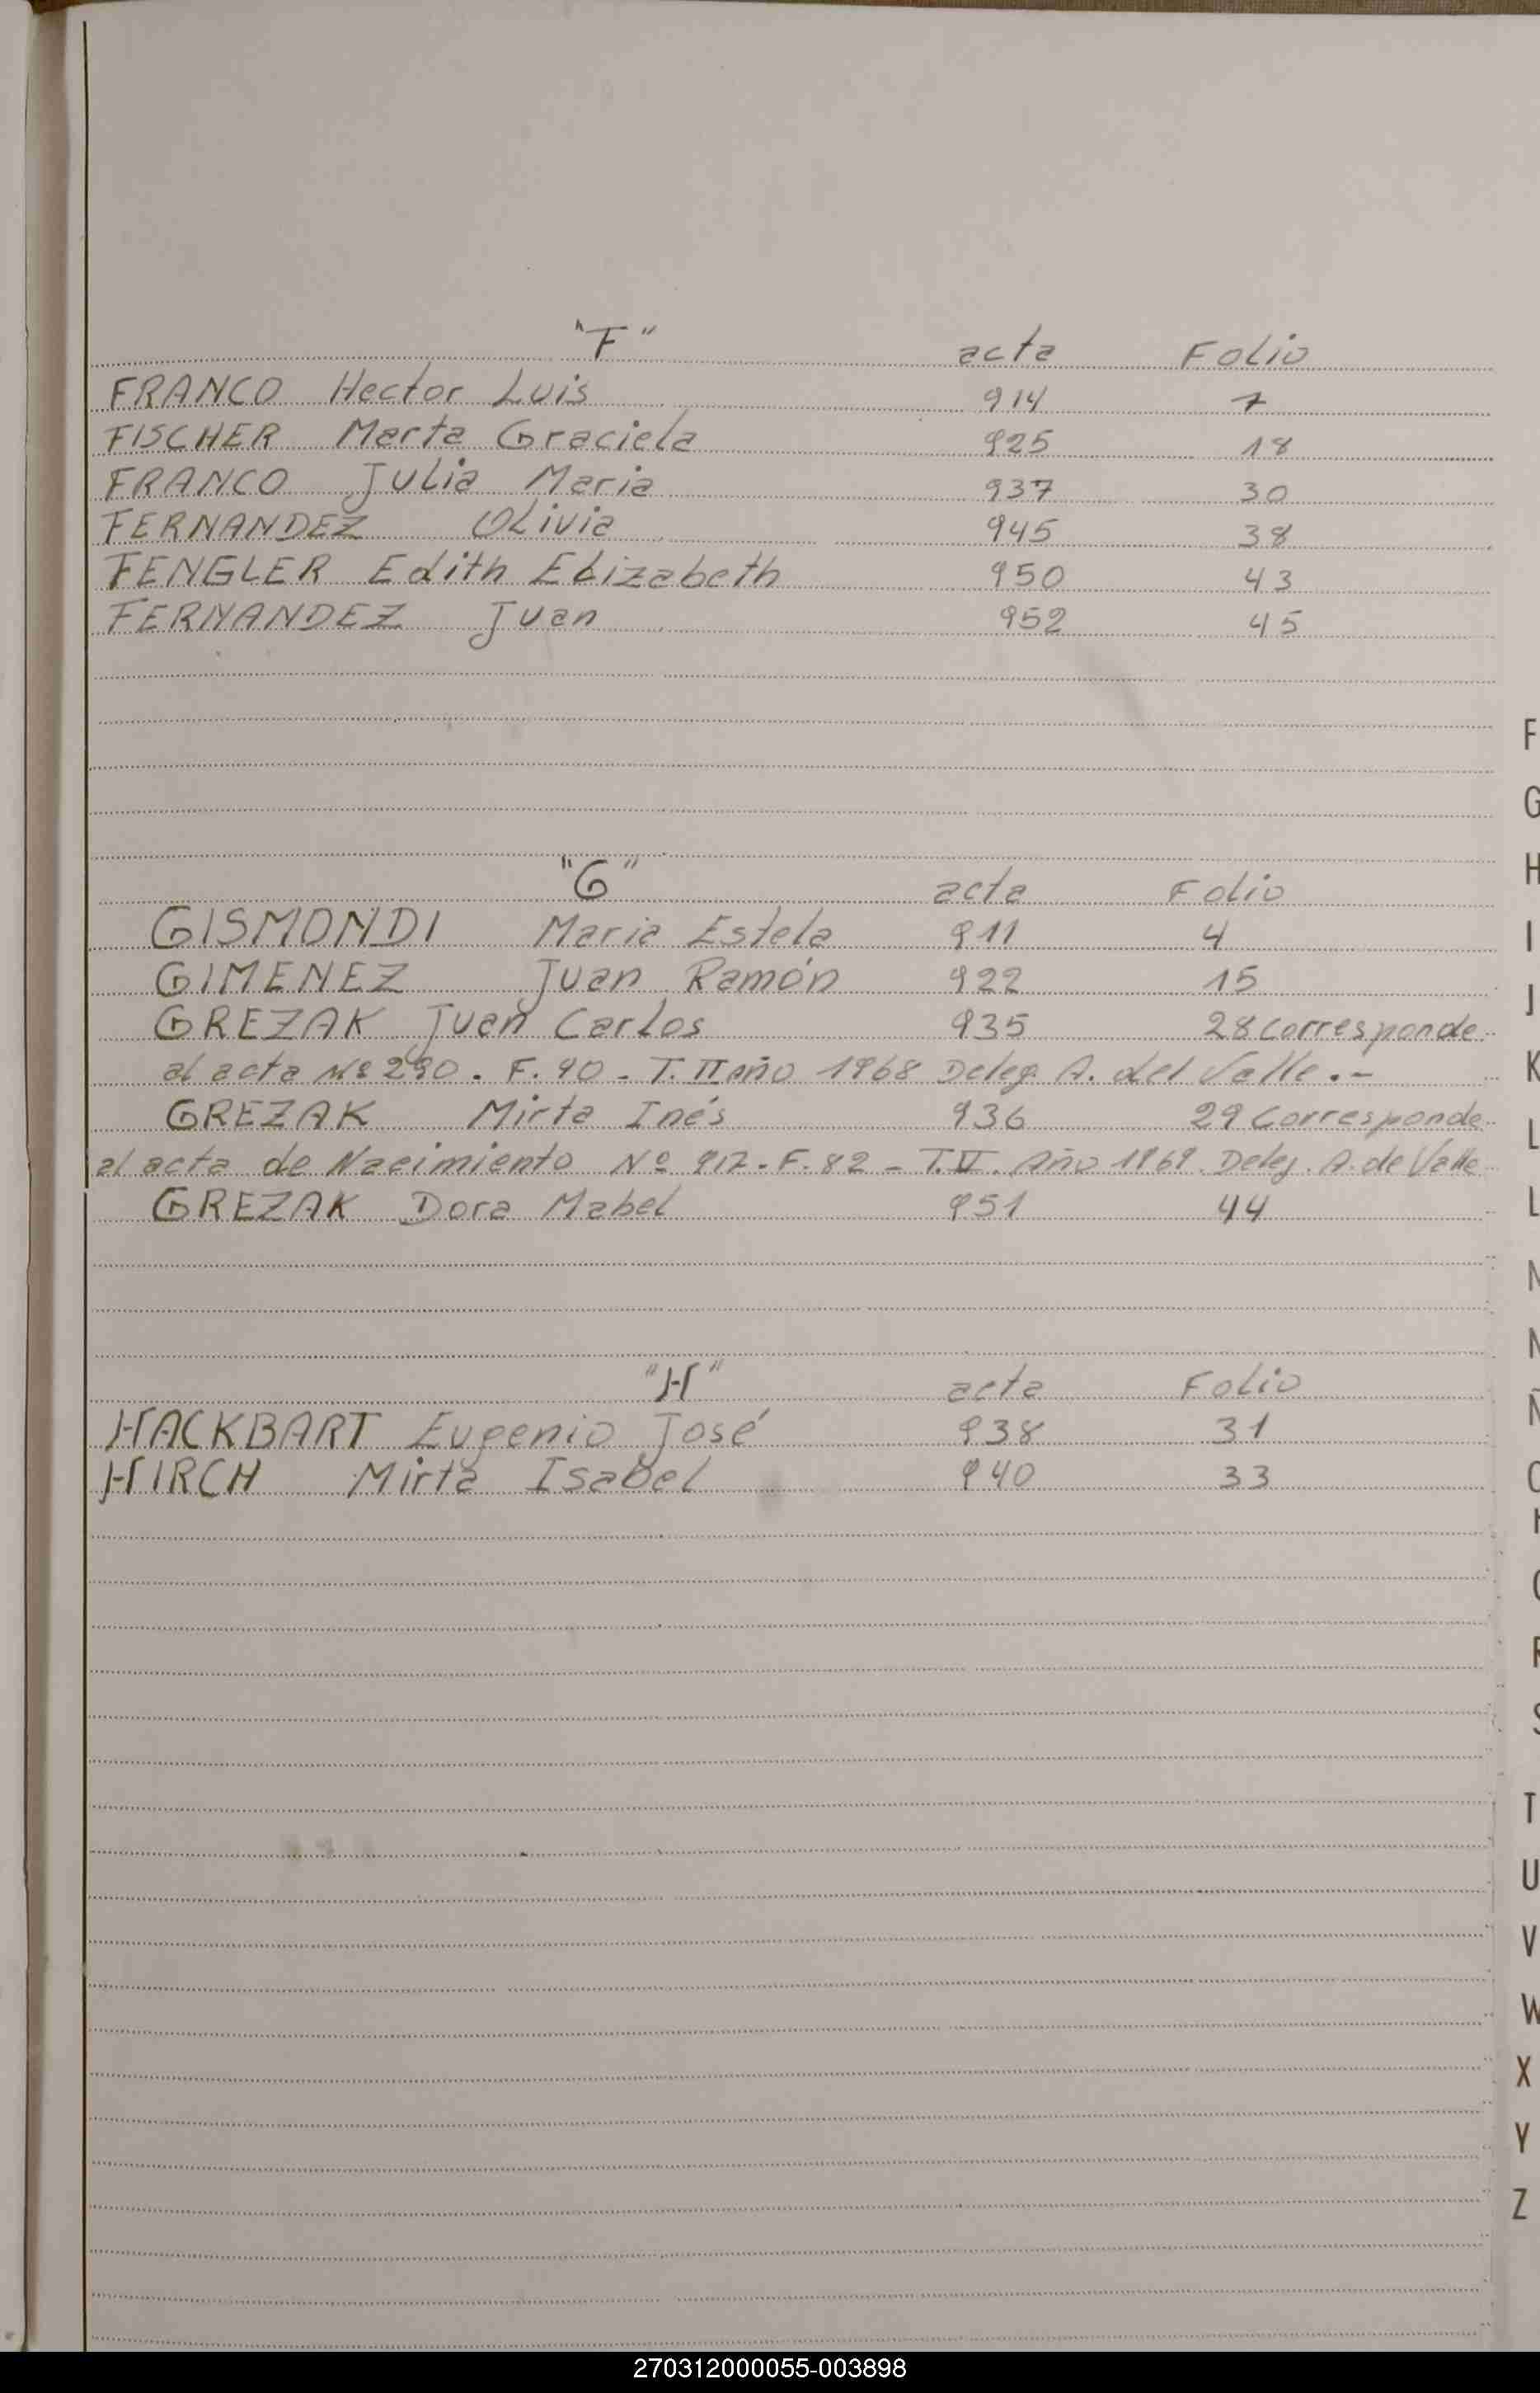 "F" acta Folio
FRANCO Hector Luis 914 7
FISCHER Marta Graciela 925 18
FRANCO Julia Maria 937 30
FERNANDEZ Olivia 945 38
FENGLER Edith Elizabeth 950 43
FERNANDEZ Juan 952 45
"G" acta Folio
GISMONDI Maria Estela 911 4
GIMENEZ Juan Ramón 922 15
GREZAK Juan Carlos 935 28 Corresponde
al acta Nº 290. F. 90 - T. II año 1968 Deleg. A. del Valle.-
GREZAK Mirta Inés 936 29 Corresponde
al acta de Nacimiento Nº 917. F. 82 - T. II. Año 1969. Deleg. A. de Valle
GREZAK Dora Mabel 951 44
"H" acta Folio
HACKBART Eugenio José 938 31
HIRCH Mirta Isabel 940 33
F
G
H
I
J
K
L
L
N
N
Ñ
O
Q
R
S
T
U
V
W
X
Y
Z
270312000055-003898